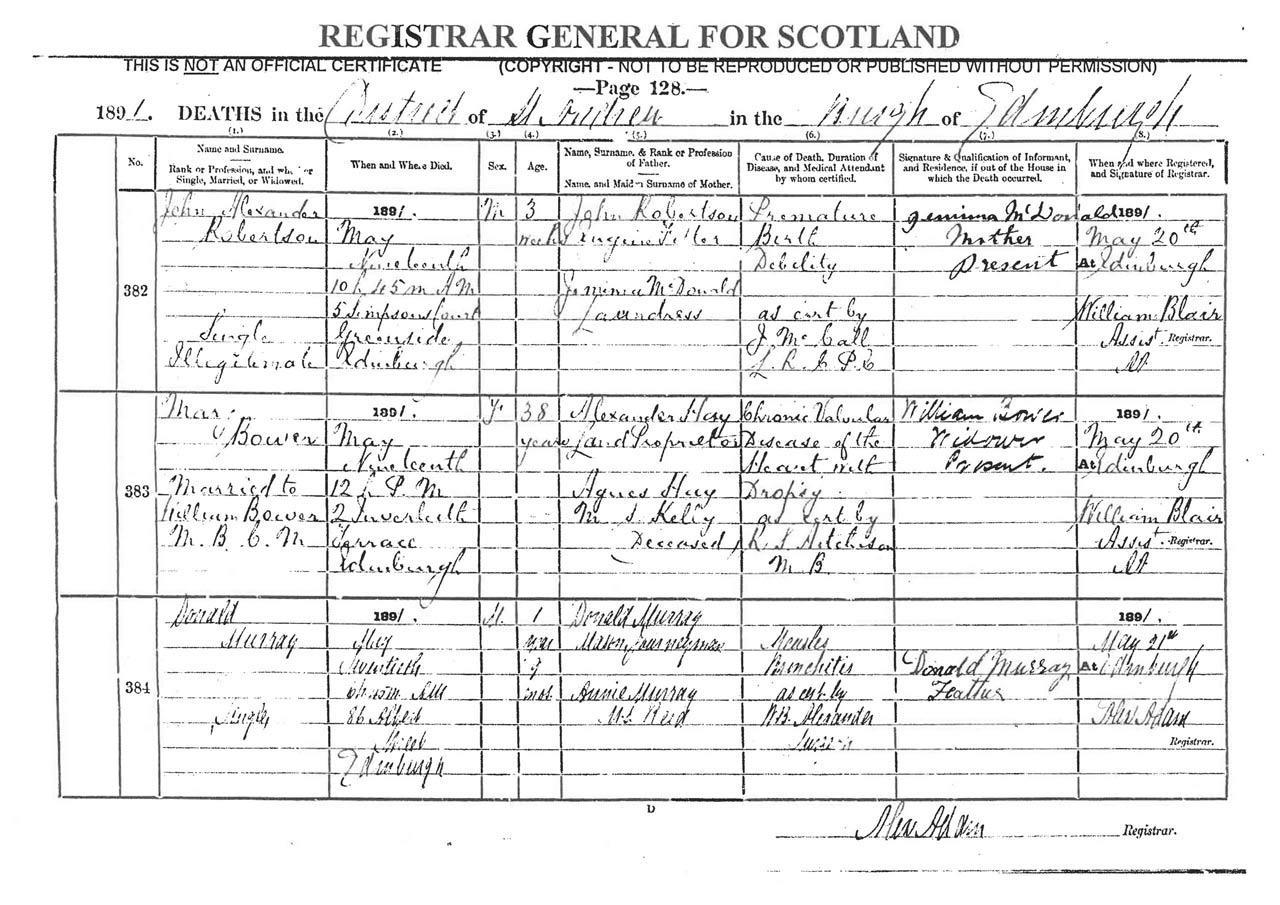 REGISTRAR GENERAL FOR SCOTLAND
THIS IS NOT AN OFFICIAL CERTIFICATE (COPYRIGHT - NOT TO BE REPRODUCED OR PUBLISHED WITHOUT PERMISSION)
—Page 128.—
1891. DEATHS in the District of St. Andrew in the Burgh of Edinburgh
(1.) (2.) (3.) (4.) (5.) (6.) (7.) (8.)
No.
Name and Surname.
Rank or Profession, and whether
Single, Married, or Widowed.
When and Where Died.
Sex.
Age.
Name, Surname, & Rank or Profession
of Father.
Name, and Maiden Surname of Mother.
Cause of Death, Duration of
Disease, and Medical Attendant
by whom certified.
Signature & Qualification of Informant,
and Residence, if out of the House in
which the Death occurred.
When and where Registered,
and Signature of Registrar.
382
John Alexander
Robertson
Single
Illegitimate
1891.
May
Nineteenth
10 h 45 m A M
5 Simpsons Court
Greenside
Edinburgh
M
3
weeks
John Robertson
Engine Fitter
Jemima McDonald
Laundress
Premature
Birth
Debility
as cert by
J. McCall
Jemima McDonald
Mother
Present
1891.
May 20th
At Edinburgh
William Blair
Assist. Registrar.
383
Mary
Bower
Married to
William Bower
M. B. C. M
1891.
May
Nineteenth
12 h P. M
2 Inverleith
Terrace
Edinburgh
F.
38
years
Alexander Hay
Land Proprietor
Agnes Hay
M. S. Kelly
Deceased
Chronic Valvular
Disease of the
Heart with
Dropsy
as cert by
R. S. Aitchison
M B
William Bower
Widower
Present.
1891.
May 20th
At Edinburgh
William Blair
Assist. Registrar.
384
Donald
Murray
Single
1891.
May
Twentieth
AM
86 Albert
Street
Edinburgh
M.
1
year
9
mos
Donald Murray
Mason Journeyman
Annie Murray
M.S. Reid
Measles
Bronchitis
as cert by
W.B. Alexander
Surgeon
Donald Murray
Father
1891.
May 21st
At Edinburgh
Alex Adam
Registrar.
D
Alex Adam Registrar.